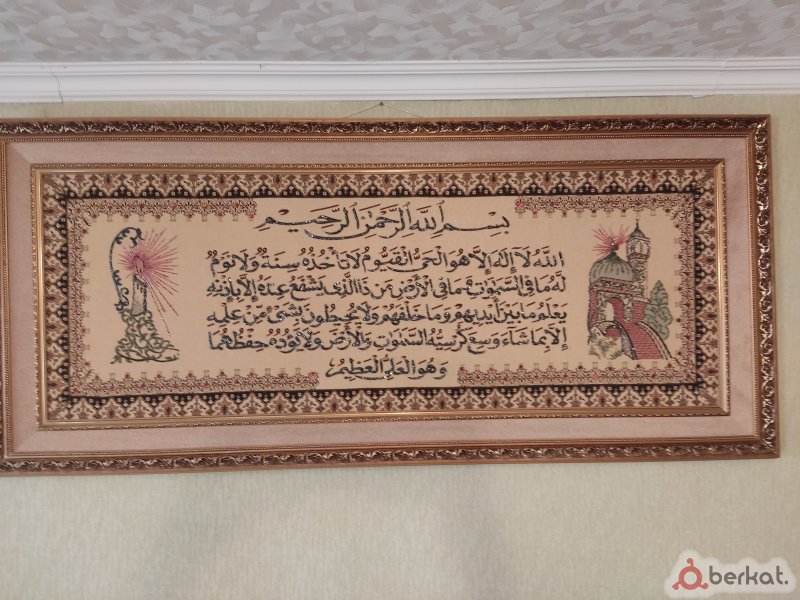 بِسْمِ ٱللَّهِ ٱلرَّحْمَٰنِ ٱلرَّحِيمِ
اللهُ لَآ إِلَهَ إِلَّا هُوَ الْحَيُّ الْقَيُّومُ لَا تَأْخُذُهُ سِنَةٌ وَلَا نَوْمٌ
لَهُ مَا فِي السَّمَوَاتِ وَمَا فِي الْأَرْضِ مَنْ ذَا الَّذِي يَشْفَعُ عِنْدَهُ إِلَّا بِإِذْنِهِ
يَعْلَمُ مَا بَيْنَ أَيْدِيهِمْ وَمَا خَلْفَهُمْ وَلَا يُحِيطُونَ بِشَيْءٍ مِنْ عِلْمِهِ
إِلَّا بِمَا شَآءَ وَسِعَ كُرْسِيُّهُ السَّمَوَاتِ وَالْأَرْضَ وَلَا يَؤُدُهُ حِفْظُهُمَا
وَهُوَ الْعَلِيُّ الْعَظِيمُ
berkat.